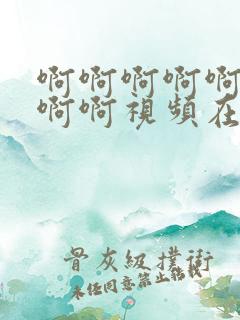 啊啊啊啊啊
啊啊視頻在
骨灰級撲街
未經同意禁止轉載